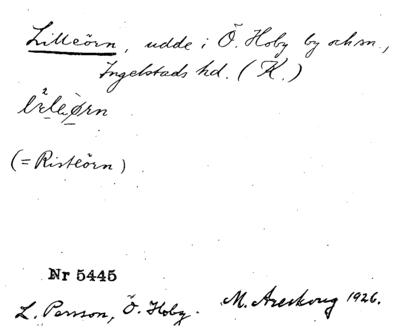 Lilleörn, udde i Ö. Hoby by och sn.,
Ingelstads hd. (K.)
(= Risteörn)
Nr 5445
L. Persson, Ö. Hoby. M. Areskoug 1926.